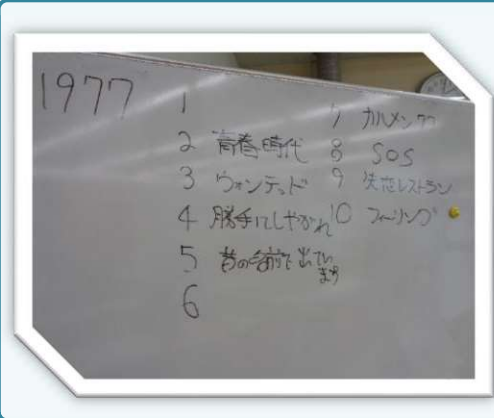 1977
1
2 青春時代
3 ウォンテッド
4 勝手にしやがれ
5 昔の名前で出てい
ます
6
7 カルメン77
8 SOS
9 失恋レストラン
10 フィーリング